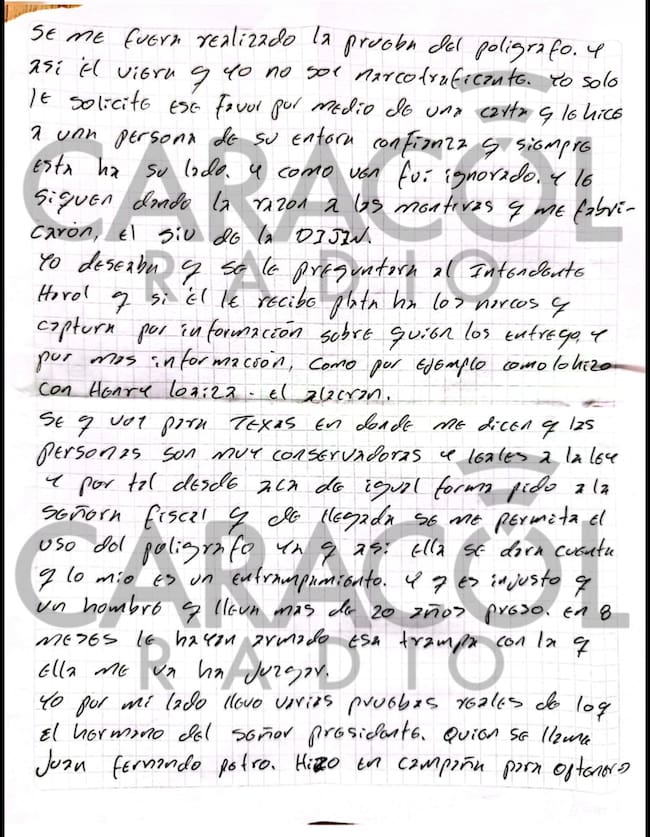 se me fuera realizado la prueba del poligrafo. y
asi él viera q yo no soy narcotraficante. Yo solo
le solicite ese favor por medio de una carta q le hice
a una persona de su entera confianza q siempre
esta ha su lado. y como ven fui ignorado. y le
siguen dando la razon a las mentiras q me fabri-
carón, el siu de la DIJIN.
Yo deseaba q se le preguntara al Intendente
Harol q si él le recibe plata ha los narcos q
captura por información sobre quien los entrego, y
por mas información, como por ejemplo como lo hizo
con Henry loaiza - el alacran.
Se q voy para Texas en donde me dicen q las
personas son muy conservadoras y leales a la ley
y por tal desde aca de igual forma pido a la
señora fiscal q de llegada se me permita el
uso del poligrafo ya q asi ella se dara cuenta
q lo mio es un entrampamiento. y q es injusto q
un hombre q lleva mas de 20 años preso. en 8
meses le hayan armado esa trampa con la q
ella me va ha juzgar.
Yo por mi lado llevo varias pruebas reales de lo q
el hermano del señor presidente. Quien se llama
Juan Fernando petro. Hizo en campaña para optener
CARACOL
RADIO
CARACOL
RADIO